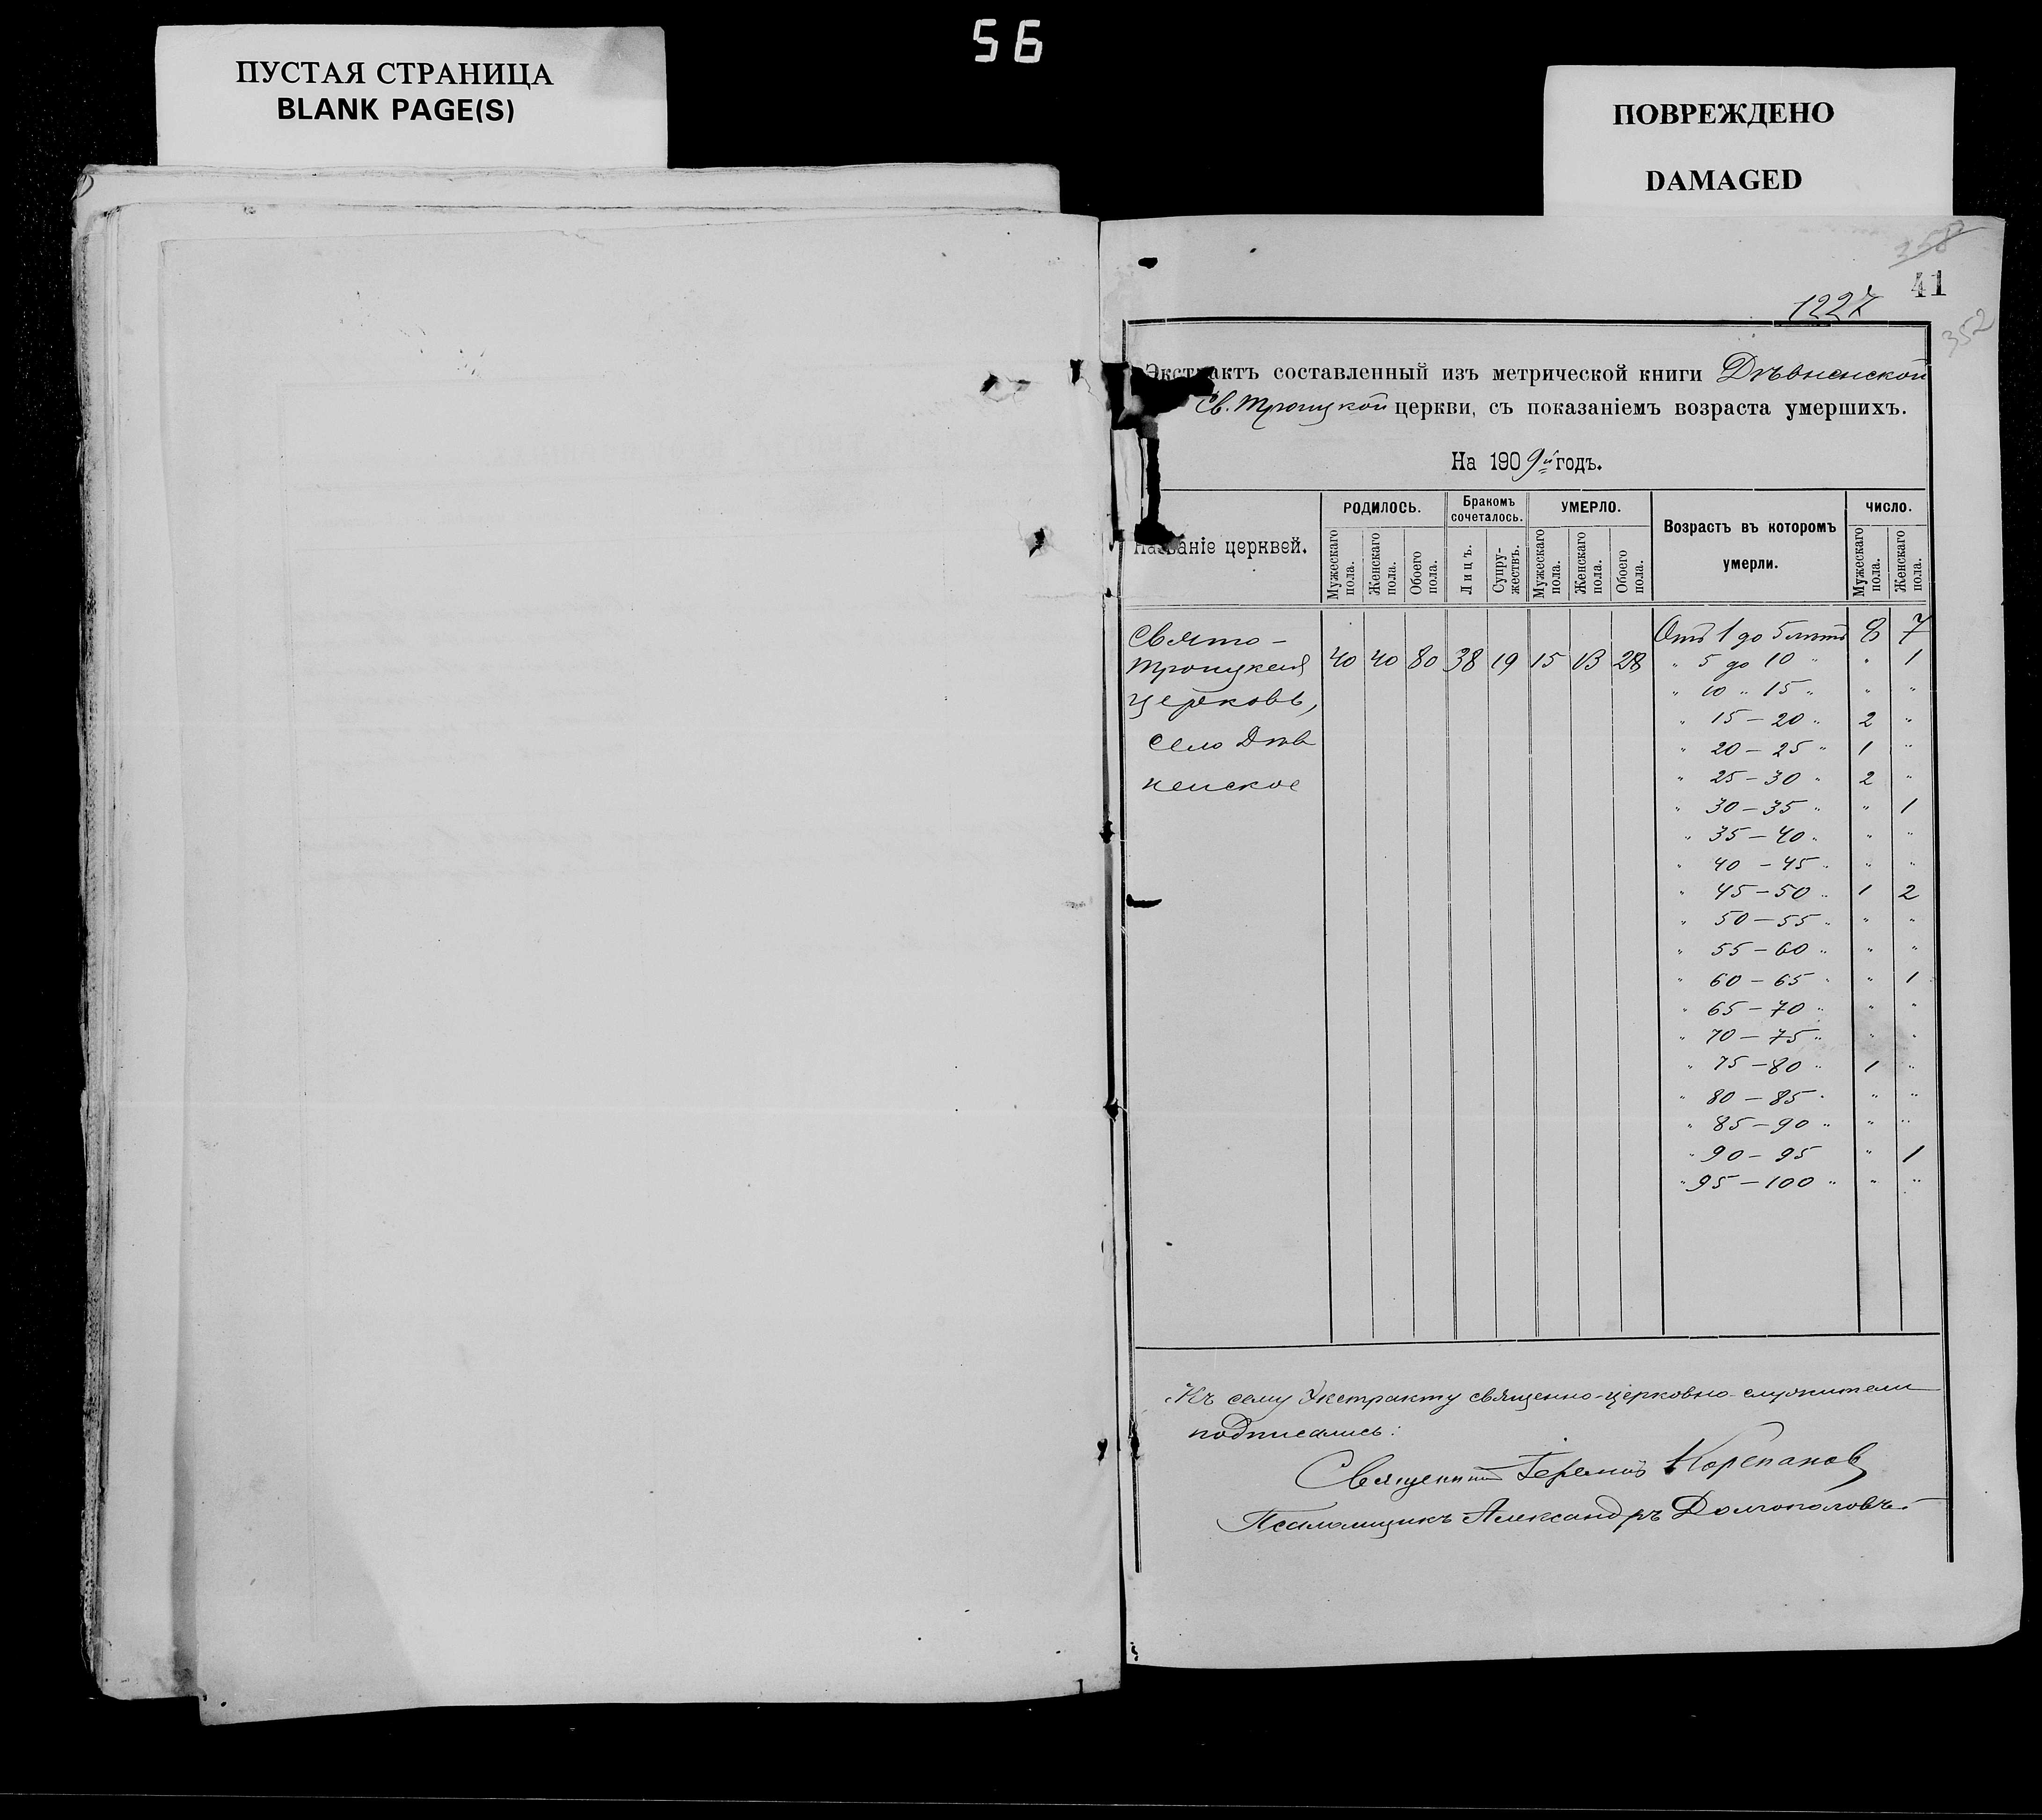 56
ПУСТАЯ СТРАНИЦА
BLANK PAGE(S)
ПОВРЕЖДЕНО
DAMAGED
358
41
1227
352
Экстрактъ составленный изъ метрической книги Дѣвненской
Св. Троицкой церкви, съ показаніемъ возраста умершихъ.
На 1909й годъ.
Названіе церквей.
РОДИЛОСЬ.
Мужескаго пола.
Женскаго пола.
Обоего пола.
Бракомъ сочеталось.
Лицъ.
Супружествъ.
УМЕРЛО.
Мужескаго пола.
Женскаго пола.
Обоего пола.
Возрастъ въ которомъ умерли.
ЧИСЛО.
Мужескаго пола.
Женскаго пола.
Свято-
Троицкая 40 40 80 38 19 15 13 28
церковь,
село Дѣв
ненское
Отъ 1 до 5 лѣтъ 8 7
" 5 до 10 " " 1
" 10 " 15 " " "
" 15 — 20 " 2 "
" 20 — 25 " 1 "
" 25 — 30 " 2 "
" 30 — 35 " " 1
" 35 — 40 " " "
" 40 — 45 " " "
" 45 — 50 " 1 2
" 50 — 55 " " "
" 55 — 60 " " "
" 60 — 65 " " 1
" 65 — 70 " " "
" 70 — 75 " " "
" 75 — 80 " 1 "
" 80 — 85 " " "
" 85 — 90 " " "
" 90 — 95 " 1
" 95 — 100 " " "
Къ сему Экстракту священно-церковно-служители
подписались:
Священникъ Корепановъ
Псаломщикъ Александръ Долгополовъ.